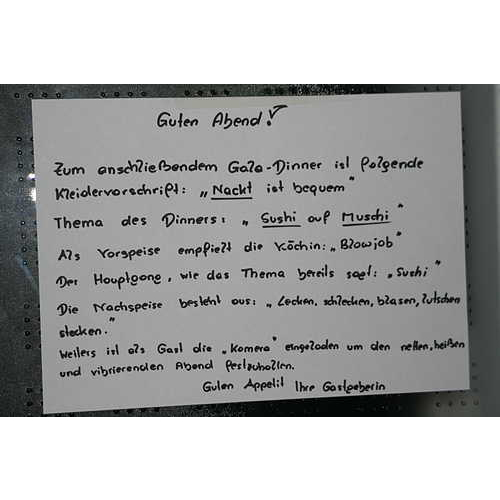 Guten Abend!
Zum anschließendem Gala-Dinner ist folgende
Kleidervorschrift: „Nackt ist bequem"
Thema des Dinners: „Sushi auf Muschi"
Als Vorspeise empfielt die Köchin: „Blowjob"
Der Hauptgang, wie das Thema bereits sagt: „Sushi"
Die Nachspeise besteht aus: „Lecken, schlecken, blasen, lutschen
stecken."
Weiters ist als Gast die „Kamera" eingeladen um den netten, heißen
und vibrierenden Abend festzuhalten.
Guten Appetit Ihre Gastgeberin